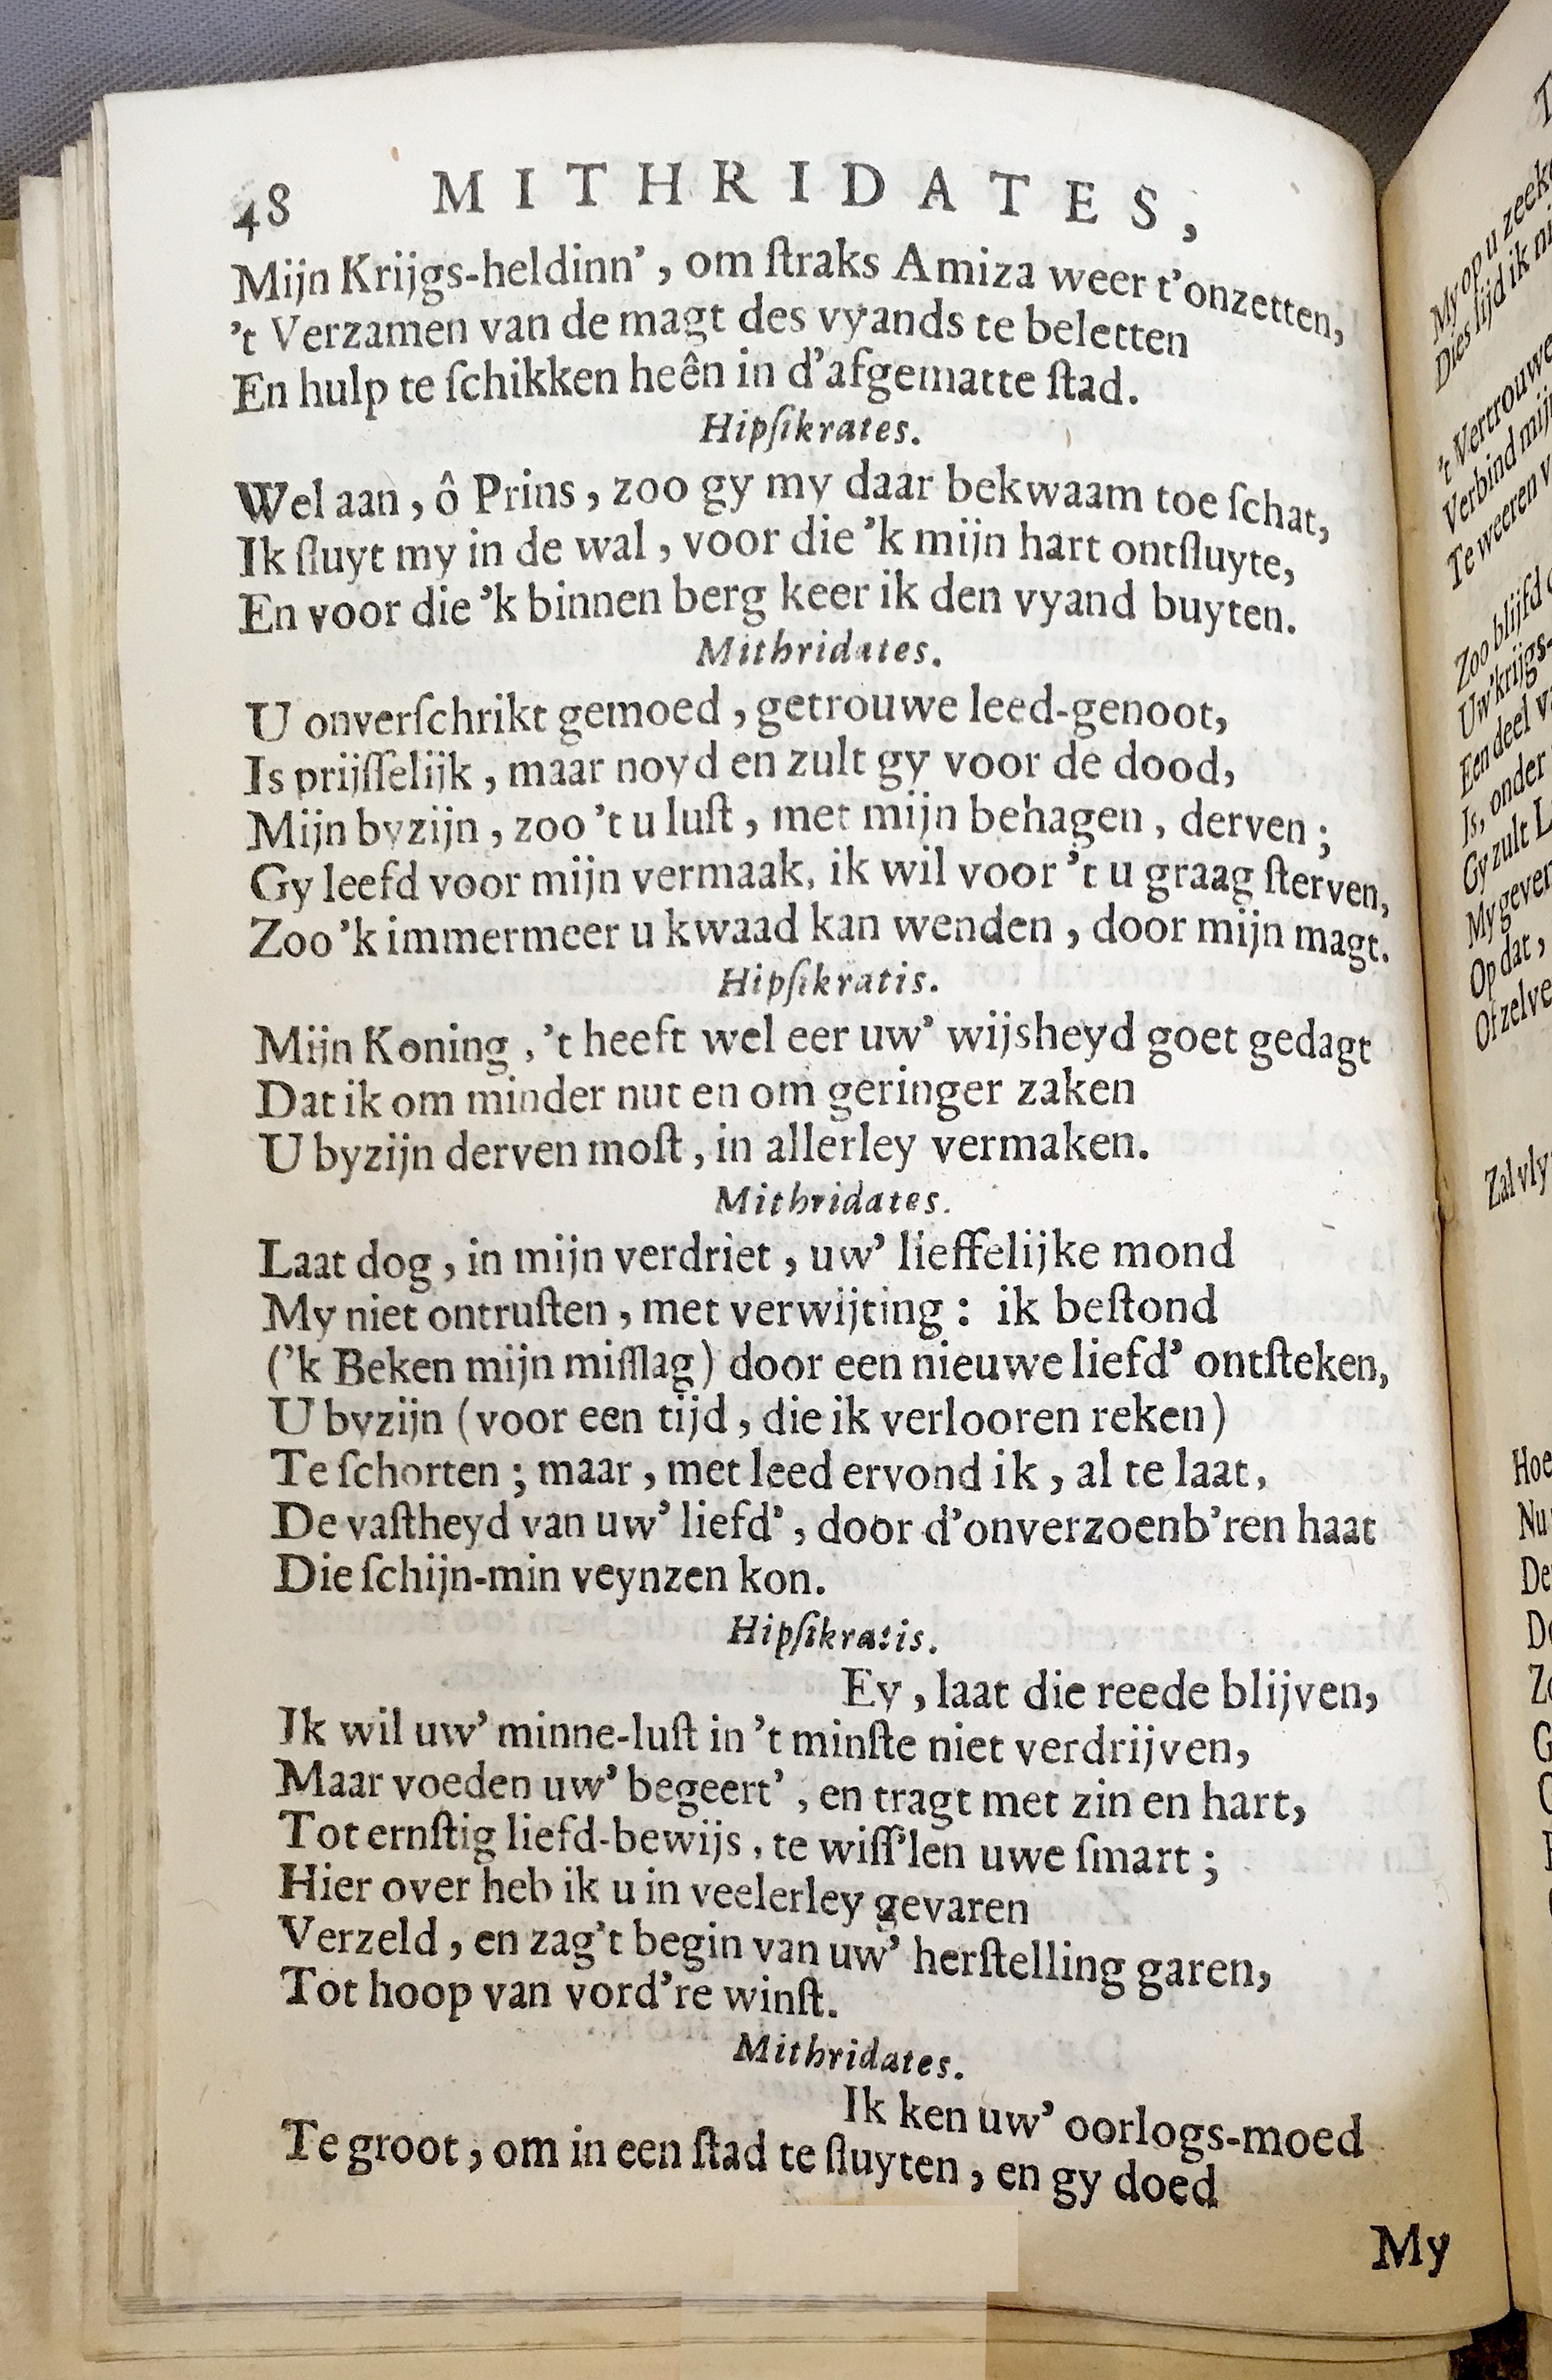 48 MITHRIDATES,
Mijn Krijgs-heldinn’, om ſtraks Amiza weer t’onzetten,
’t Verzamen van de magt des vyands te beletten
En hulp te ſchikken heên in d’afgematte ſtad.
Hipſikrates.
Wel aan, ô Prins, zoo gy my daar bekwaam toe ſchat,
Ik ſluyt my in de wal, voor die ’k mijn hart ontſluyte,
En voor die ’k binnen berg keer ik den vyand buyten.
Mithridates.
U onverſchrikt gemoed, getrouwe leed-genoot,
Is prijſſelijk, maar noyd en zult gy voor de dood,
Mijn byzijn, zoo ’t u luſt, met mijn behagen, derven;
Gy leefd voor mijn vermaak, ik wil voor ’t u graag ſterven,
Zoo ’k immermeer u kwaad kan wenden, door mijn magt.
Hipſikratis.
Mijn Koning, ’t heeft wel eer uw’ wijsheyd goet gedagt
Dat ik om minder nut en om geringer zaken
U byzijn derven moſt, in allerley vermaken.
Mithridates.
Laat dog, in mijn verdriet, uw’ lieffelijke mond
My niet ontruſten, met verwijting: ik beſtond
(’k Beken mijn miſſlag) door een nieuwe liefd’ ontſteken,
U byzijn (voor een tijd, die ik verlooren reken)
Te ſchorten; maar, met leed ervond ik, al te laat,
De vaſtheyd van uw’ liefd’, door d’onverzoenb’ren haat
Die ſchijn-min veynzen kon.
Hipſikratis.
Ey, laat die reede blijven,
Ik wil uw’ minne-luſt in ’t minſte niet verdrijven,
Maar voeden uw’ begeert’, en tragt met zin en hart,
Tot ernſtig liefd-bewijs, te wiſſ’len uwe ſmart;
Hier over heb ik u in veelerley gevaren
Verzeld, en zag’t begin van uw’ herſtelling garen,
Tot hoop van vord’re winſt.
Mithridates.
Ik ken uw’ oorlogs-moed
Te groot, om in een ſtad te ſluyten, en gy doed
My
My op u
Dies lijd ik
’t Vertrouwe
Verbind
Te weeren
Zoo blijfd
Uw’krijgs-
Een deel
Is, onder
Gy zult
My geven
Op dat,
Of zelve
Zal
Hoe